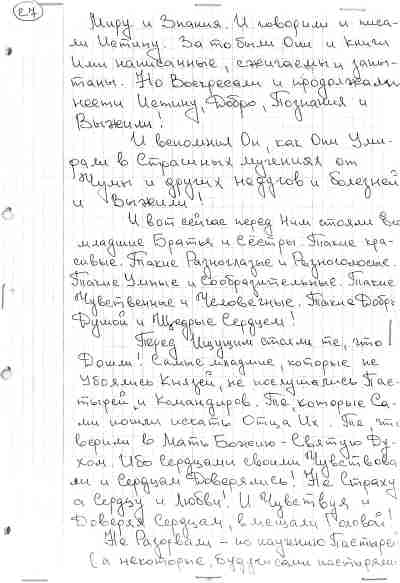 27
Миру и Знания. И говорили и писа-
ли Истину. За то были Они и книги
Ими написанные, сжигаемы и запы-
таны. Но Воскресали и продолжали
нести Истину, Добро, Познания и
Выжили!
И вспомнил Он, как Они Уми-
рали в Страшных мучениях от
Чумы и других недугов и болезней
и Выжили!
И вот сейчас перед Ним стояли
младшие Братья и Сёстры. Такие кра-
сивые. Такие Разноглазые и Разноголосые.
Такие Умные и Сообразительные. Такие
Чувственные и Человечные. Такие Добры
Душой и Щедрые Сердцем!
Перед Ищущим стали те, что
Дошли! Самые младшие, которые не
Убоялись Князей, не послушались Пас-
тырей, и Командиров. Те, которые Са-
ми пошли искать Отца Их. Те, что
верили в Мать Божию - Святую Ду-
хом. Ибо сердцами своими Чувствова
ли и Сердцам Доверялись! Не Страху
а Сердцу и Любви! И Чувствуя и
Доверяя Сердцам, вмещали Головой!
Не Разорвали - по научению Пастырей
(а некоторые, будучи сами пастырями